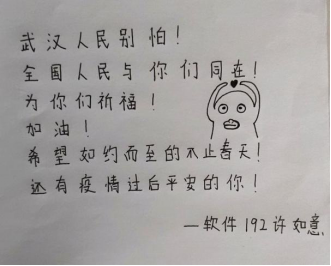 武汉人民别怕！
全国人民与你们同在！
为你们祈福！
加油！
希望如约而至的不止春天！
还有疫情过后平安的你！
—软件192许如意